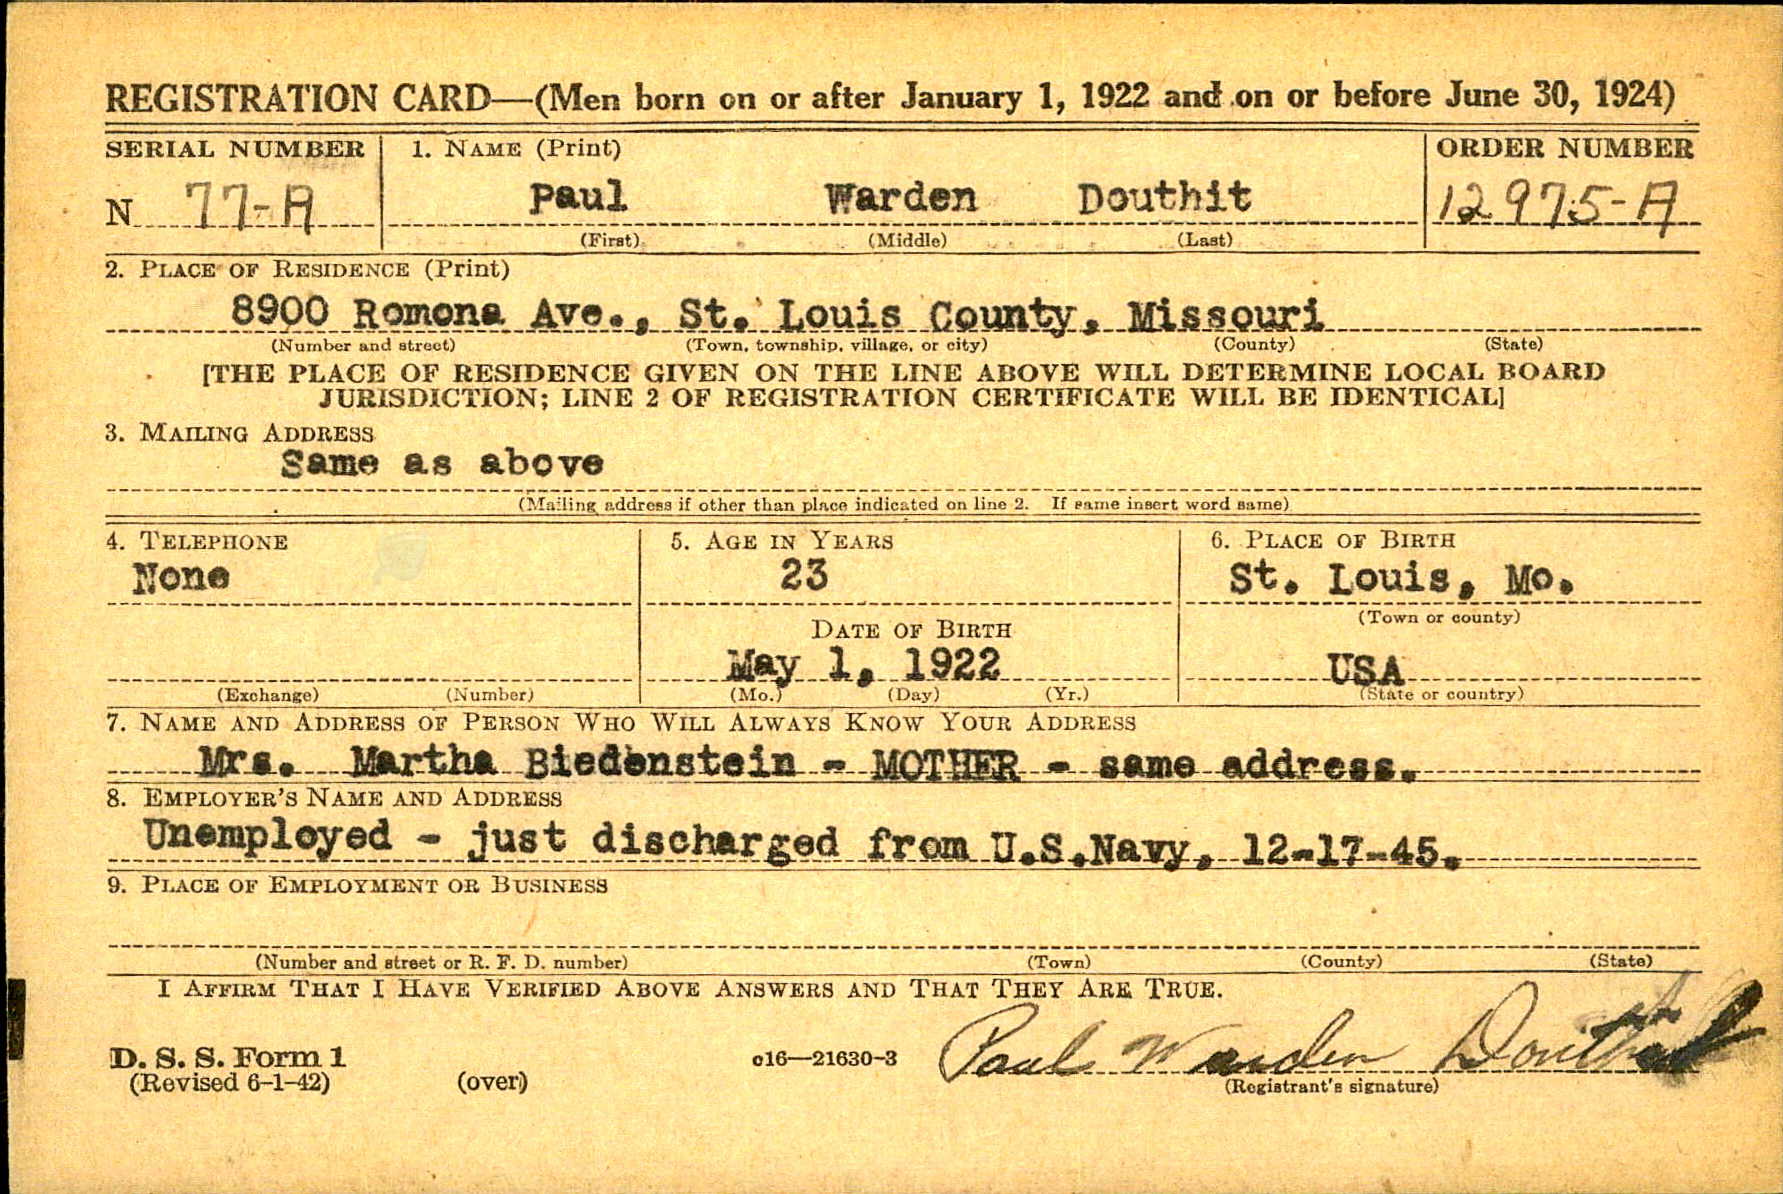 REGISTRATION CARD—(Men born on or after January 1, 1922 and on or before June 30, 1924)
SERIAL NUMBER
1. NAME (Print)
ORDER NUMBER
N 77-A
Paul Warden Douthit
12975-A
(First) (Middle) (Last)
2. PLACE OF RESIDENCE (Print)
8900 Romona Ave., St. Louis County, Missouri
(Number and street) (Town, township, village, or city) (County) (State)
[THE PLACE OF RESIDENCE GIVEN ON THE LINE ABOVE WILL DETERMINE LOCAL BOARD
JURISDICTION; LINE 2 OF REGISTRATION CERTIFICATE WILL BE IDENTICAL]
3. MAILING ADDRESS
Same as above
(Mailing address if other than place indicated on line 2. If same insert word same)
4. TELEPHONE
5. AGE IN YEARS
6. PLACE OF BIRTH
None
23
St. Louis, Mo.
(Town or county)
DATE OF BIRTH
May 1, 1922
USA
(Exchange) (Number)
(Mo.) (Day) (Yr.)
(State or country)
7. NAME AND ADDRESS OF PERSON WHO WILL ALWAYS KNOW YOUR ADDRESS
Mrs. Martha Biedenstein - MOTHER - same address.
8. EMPLOYER'S NAME AND ADDRESS
Unemployed - just discharged from U.S.Navy, 12-17-45.
9. PLACE OF EMPLOYMENT OR BUSINESS
(Number and street or R. F. D. number) (Town) (County) (State)
I AFFIRM THAT I HAVE VERIFIED ABOVE ANSWERS AND THAT THEY ARE TRUE.
Paul Warden Douthit
D. S. S. Form 1
(Revised 6-1-42)
(over)
c16—21630-3
(Registrant's signature)